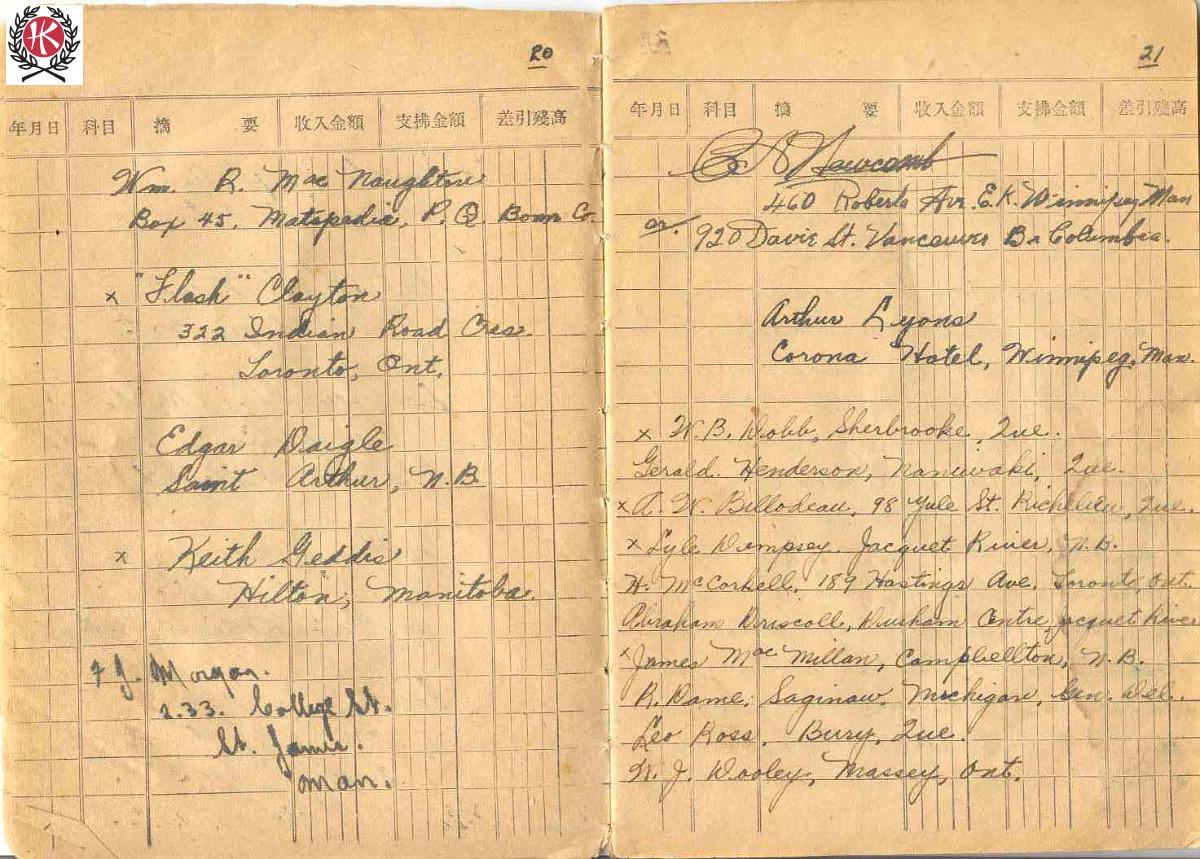 HK
20
年月日 科目 摘要 收入金額 支拂金額 差引残高
Wm. R. MacNaughton
Box 45, Matapedia, P.Q. Bonn Co.
x "Flash" Clayton
322 Indian Road Cres.
Toronto, Ont.
Edgar Daigle
Saint Arthur, N.B.
x Keith Geddis
Hilton, Manitoba.
F J. Morgan.
233. College St.
St. James.
Man.
21
年月日 科目 摘要 收入金額 支拂金額 差引残高
Newcomb
460 Roberts Ave. E.K. Winnipeg Man
or. 920 Davie St. Vancouver Br Columbia.
Arthur Lyons
Corona Hotel, Winnipeg, Man.
x W.B. Dobb, Sherbrooke, Que.
Gerald Henderson, Naniwaki, Que.
x A. W. Billodeau, 98 Yule St. Richelieu, Que.
x Lyle Dempsey. Jacquet River, N.B.
H. McCorkell, 189 Hastings Ave. Toronto, Ont.
Abraham Driscoll, Durham Centre, Jacquet River
x James MacMillan, Campbellton, N.B.
R. Dame, Saginaw, Michigan, Gen. Del.
Leo Ross, Bury, Que.
W. J. Wooley, Massey, Ont.